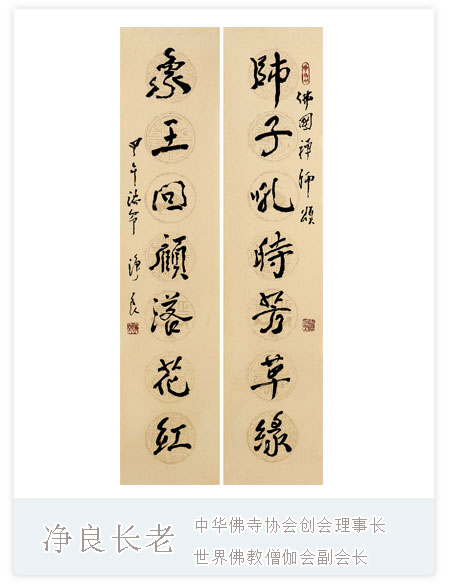 佛國禪師頌
師子吼時芳草綠
象王回顧落花紅
甲午 淨良
净良长老
中华佛寺协会创会理事长
世界佛教僧伽会副会长